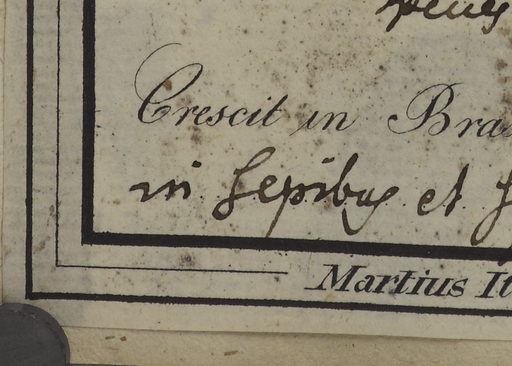 Crescit in Bra
in Sepibus et
Martius It